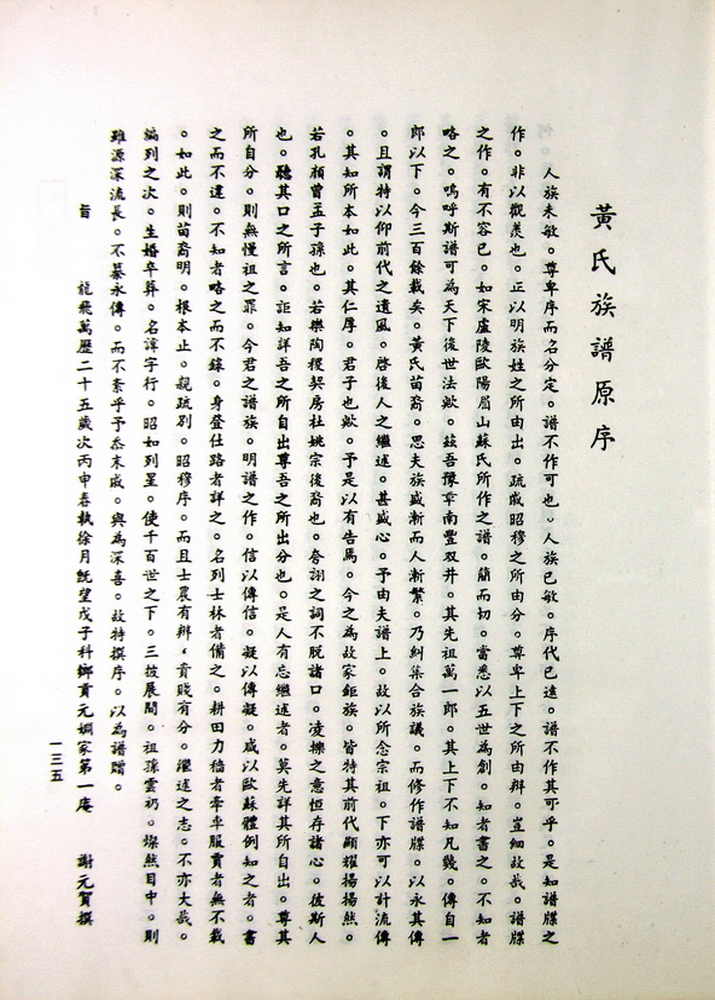 黃氏族譜原序
人族未敏。尊卑序而名分定。譜不作可也。人族已敏。序代已遠。譜不作其可乎。是知譜牒之
作。非以觀美也。正以明族姓之所由出。疏戚昭穆之所由分。尊卑上下之所由辨。豈細故哉。譜牒
之作。有不容已。如宋盧陵歐陽眉山蘇氏所作之譜。簡而切。當悉以五世為創。知者書之。不知者
略之。嗚呼斯譜可為天下後世法歟。茲吾豫章南豐双井。其先祖萬一郎。其上下不知凡幾。傳自一
郎以下。今三百餘載矣。黃氏苗裔。思夫族盛漸而人漸繁。乃糾集合族議。而修作譜牒。以永其傳
。且謂特以仰前代之遺風。啓後人之繼述。甚盛心。予由夫譜上。故以所念宗祖。下亦可以計流傳
。其知所本如此。其仁厚。君子也歟。予是以有告焉。今之為故家鉅族。皆特其前代顯耀揚揚然。
若孔顏曾孟子孫也。若樂陶稷契房杜姚宗後裔也。夸詡之詞不脫諸口。凌轢之意恒存諸心。彼斯人
也。聽其口之所言。詎知詳吾之所自出尊吾之所出分也。是人有忘繼述者。莫先詳其所自出。尊其
所自分。則無慢祖之罪。今君之譜族。明譜之作。信以傳信。疑以傳疑。咸以歐蘇體例知之者。書
之而不遺。不知者略之而不錄。身登仕路者詳之。名列士林者備之。耕田力穡者牽車服賈者無不載
。如此。則苗裔明。根本止。親疏別。昭穆序。而且士農有辨，貴賤有分。繼述之志。不亦大哉。
編列之次。生婚卒葬。名諱字行。昭如列星。使千百世之下。三披展閱。祖孫雲礽。燦然目中。則
雖源深流長。不綦永傳。而不紊乎予忝末戚。與為深喜。故特撰序。以為譜贈。
旹 龍飛萬歷二十五歲次丙申春執徐月既望戊子科鄉貢元姻家第一庵 謝元賀撰
一三五